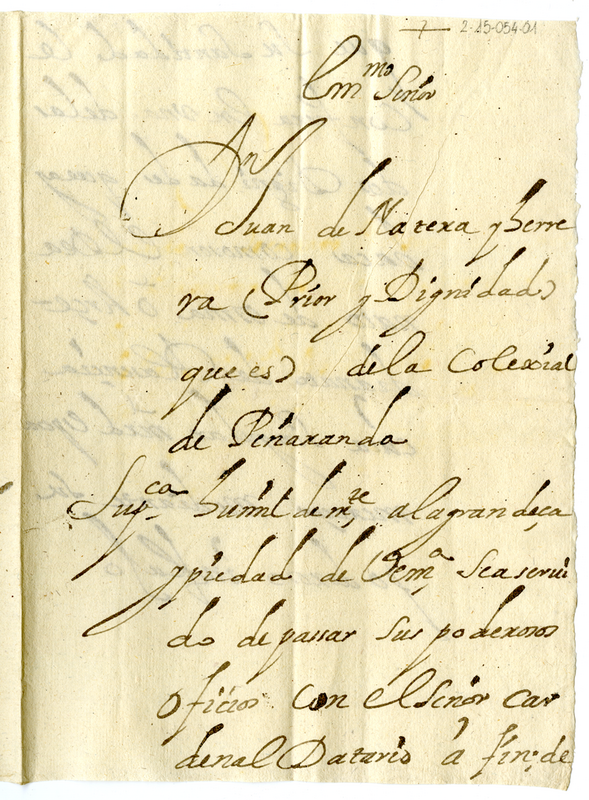 7 2-15-054-01
Em^mo Señor
Dn
Juan de Natera y herre
ra (Prior y Dignidad
que es) de la Colexial
de Peñaranda
Sup^ca humilde m^te, a la grandeça
y piedad de V em^a, sea serui
do de passar sus poderosos
oficios con el señor Car
denal Datario à fin, de